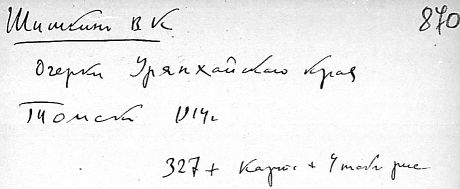 Шишкин В К 870
Очерки Урянхайского края
Томск 1914г
327 + карт + 4 табл рис